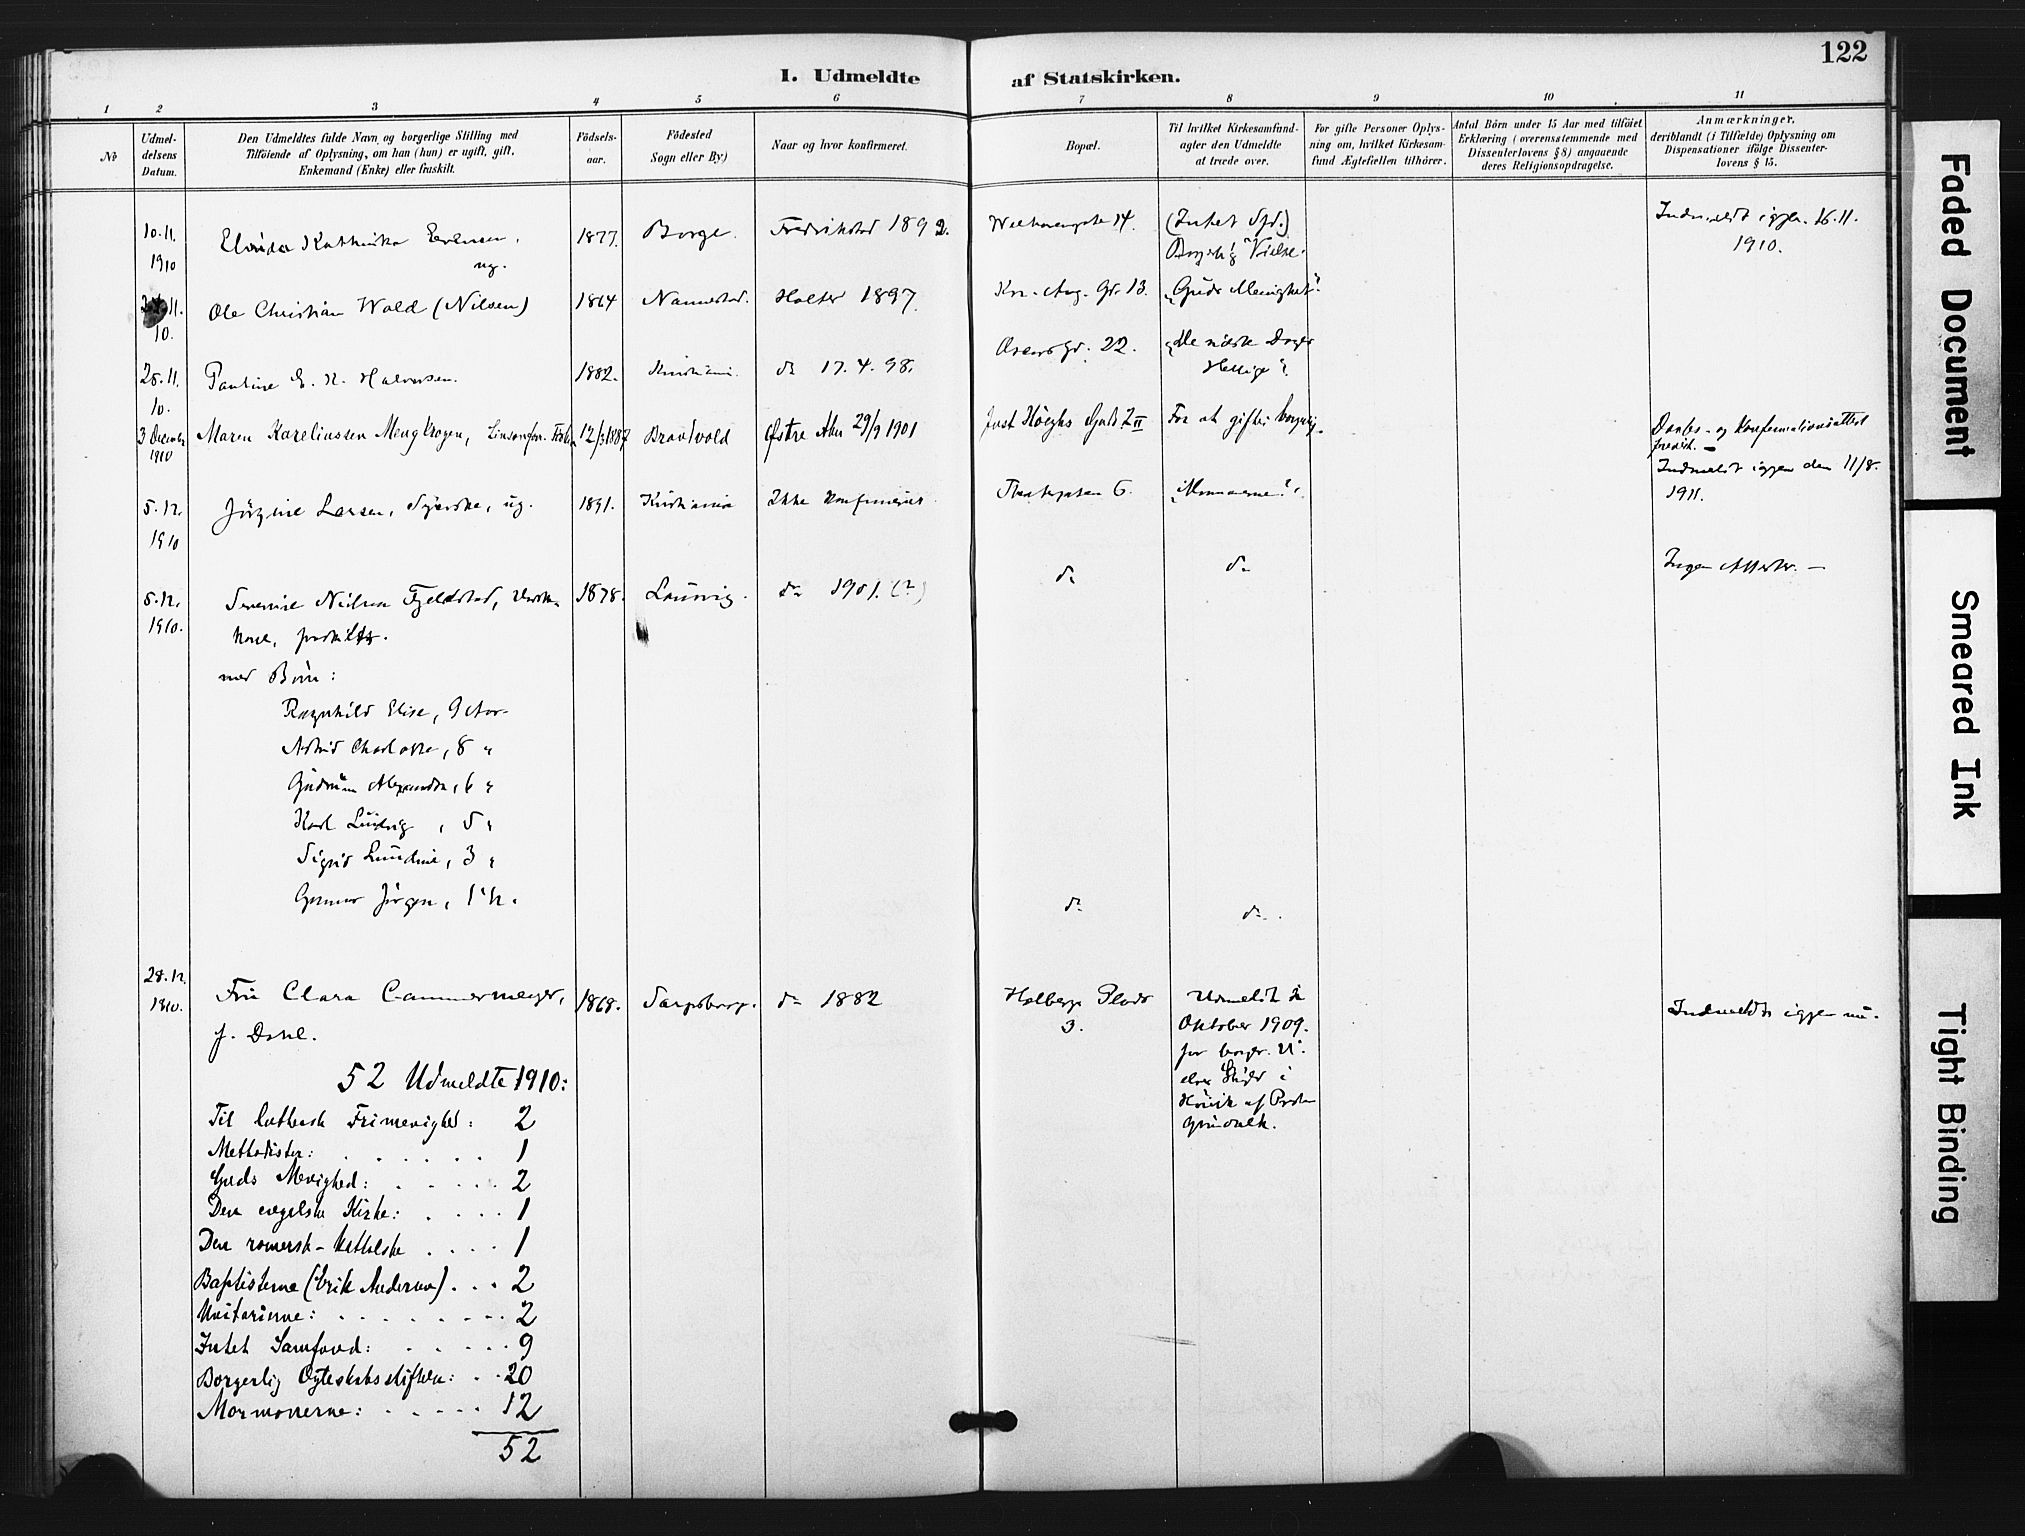 122
I. Udmeldte af Statskirken.
1 2 3 4 5 6 7 8 9 10 11
№
Udmel-
delsens
Datum.
Den Udmeldtes fulde Navn og borgerlige Stilling med
Tilföiende af Oplysning, om han (hun) er ugift, gift,
Enkemand (Enke) eller fraskilt.
Födsels-
aar.
Födested
Sogn eller By.)
Naar og hvor konfirmeret.
Bopæl.
Til hvilket Kirkesamfund-
agter den Udmeldte
at træde over.
For gifte Personer Oplys-
ning om, hvilket Kirkesam-
fund Ægtefællen tilhörer.
Antal Börn under 15 Aar med tilföiet
Erklæring (overensstemmende med
Dissenterlovens § 8) angaaende
deres Religionsopdragelse.
Anmærkninger,
deriblandt (i Tilfælde) Oplysning om
Dispensationer ifölge Dissenter-
lovens § 15.
10.11. Kathinka 1877. Borge. Fredrikstad 1892. 14. (Intet Sfd.) Indmeldt igjen 16.11.
1910 ug. Borgerlig Vielse. 1910.
11. Ole Christian Wold (Nilsen) 1864 Nannestad. Holter 1897. Kr. Aug. Gt. 13. "Guds Menighet".
10.
28.11. Pauline E. N. Halvorsen. 1882. Kristiania. do 17.4.98. Oscars Gt. 22. "De sidste Dages
10. Hellige".
3 December Maren Kareliussen Mengkrogen, 12/3 1887 Brandvold Østre Aker 29/9 1901 Just Høeghs Gade 7 II For at giftes borgerlig. Daabs- og Konfirmationsattest
1910 forevist. -
Indmeldt igjen den 11/8.
1911.
5.12. Jörgine Larsen, Syerske, ug. 1891. Kristiania Ikke konfirmeret Theatergaten 6. "Mormonerne".
1910
5.12. Severine Nielsen Fjeldstad, 1878. Laurvig. do 1901. (?) do do Ingen Attester. -
1910. kone, fraskilt.
med Börn:
Ragnhild Elise, 9 Aar
Astrid Charlotte, 8 "
Gudrun Alexandra, 6 "
Karl Ludvig, 5 "
Sigrid Lundine, 3 "
Gunnar Jörgen, 1 ½. do do.
28.12. Fru Clara Cammermeyer, 1868. Sarpsborg. do 1882 Holbergs Plads Udmeldt i Indmeldt igjen nu.
1910. f. Dahl. 3. Oktober 1909.
for borger.
i
af
52 Udmeldte 1910:
Til luthersk Frimenighed: 2
Methodister: . . . . . . 1
Guds Menighed: . . . . . 2
Den engelske Kirke: . . . . 1
Den romersk-katholske . . . . 1
Baptisterne (Erik Andersen) . . . 2
Unitarierne: . . . . . . . . 2
Intet Samfund: . . . . . 9
Borgerlig Egteskabsstiftelse: . . 20
Mormonerne: . . . . . 12
52
Faded Document
Smeared Ink
Tight Binding